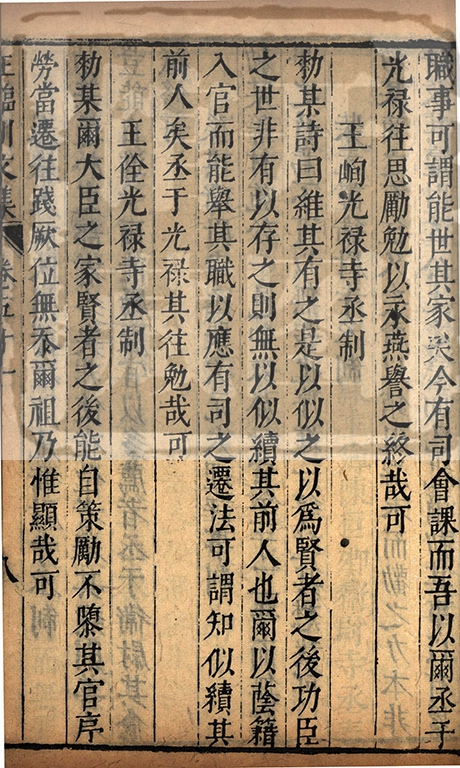 職事可謂能世其家矣今有司會課而吾以爾丞于
光禄往思勵勉以永燕譽之終哉可
王峋光禄寺丞制
勑某詩曰維其有之是以似之以為賢者之後功臣
之世非有以存之則無以似續其前人也爾以蔭籍
入官而能舉其職以應有司之遷法可謂知似續其
前人矣丞于光禄其往勉哉可
王佺光禄寺丞制
勑某爾大臣之家賢者之後能自策勵不隳其官序
勞當遷往踐厥位無忝爾祖乃惟顯哉可
王臨川文集 卷五十一 八